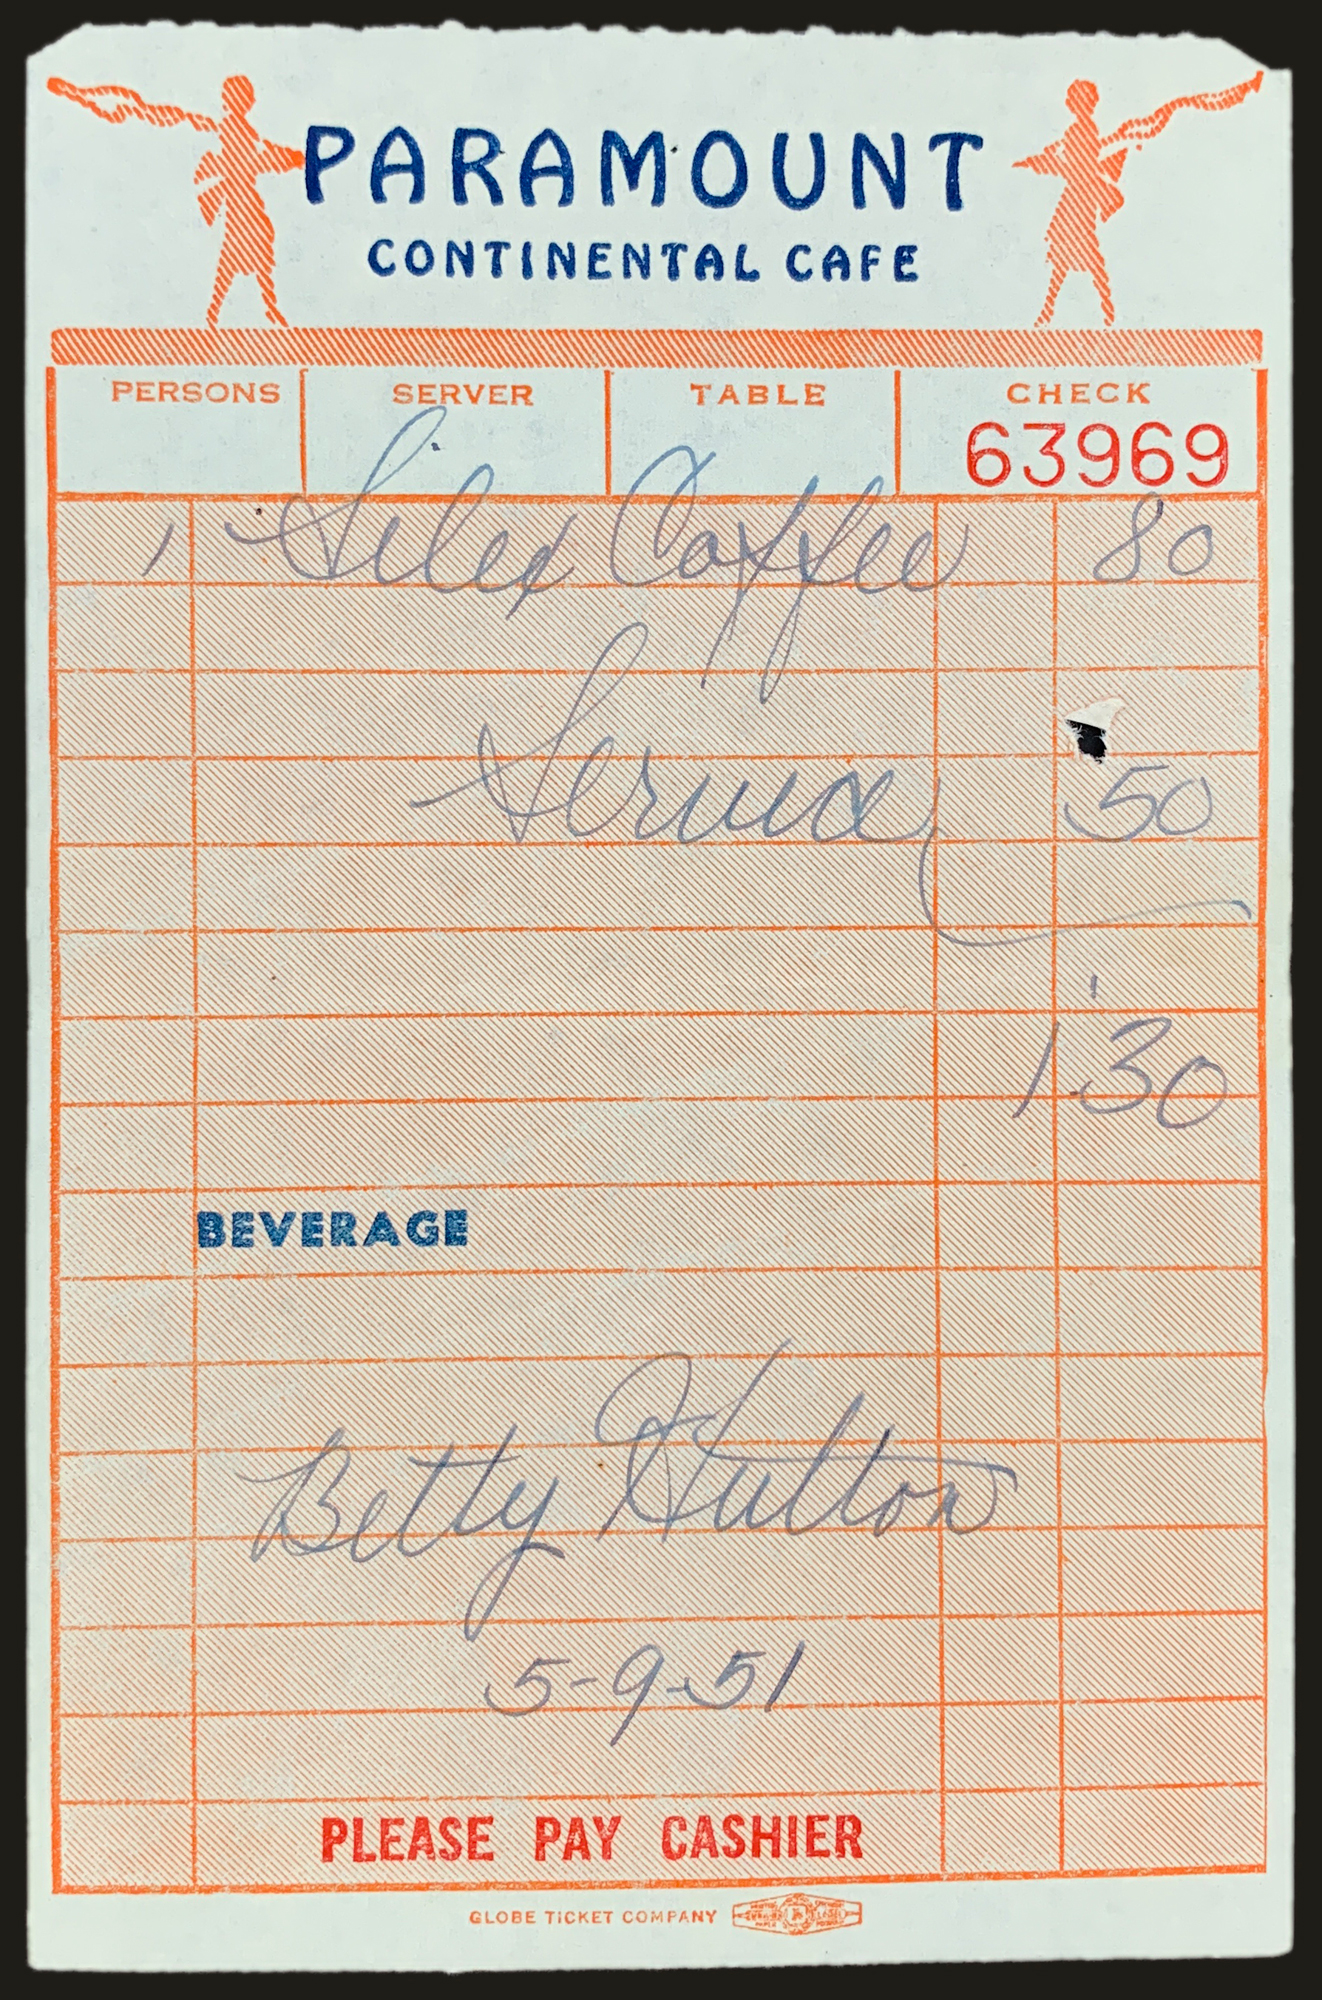 PARAMOUNT
CONTINENTAL CAFE
PERSONS SERVER TABLE CHECK
63969
1 Silex Coffee 80
Service 50
1.30
BEVERAGE
Betty Hutton
5-9-51
PLEASE PAY CASHIER
GLOBE TICKET COMPANY